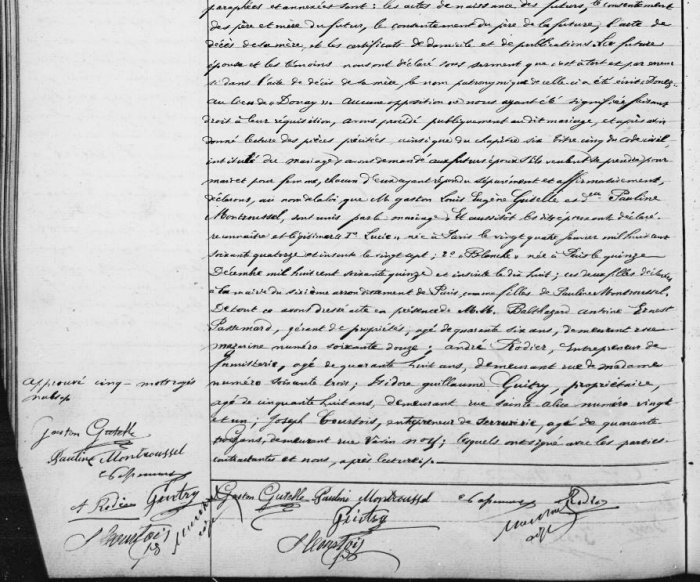 paraphées et annexées sont : les actes de naissance des futurs, le consentement
des père et mère du futur, le consentement du père de la future, l'acte de
décès de sa mère, et les certificats de domicile et de publications. La future
épouse et les témoins nous ont déclaré sous serment que c'est à tort et par erreur
si dans l'acte de décès de sa mère le nom patronymique de celle-ci a été écrit
au lieu de « Donay ». Aucune opposition ne nous ayant été signifiée, faisant
droit à leur réquisition, avons procédé publiquement audit mariage, et après avoir
donné lecture des pièces précitées ainsi que du chapitre six titre cinq du code civil,
intitulé du mariage, avons demandé aux futurs époux s'ils veulent se prendre pour
mari et pour femme, chacun d'eux ayant répondu séparément et affirmativement,
déclarons, au nom de la loi que M. Gaston Louis Eugène Gutelle et Pauline
Montroussel, sont unis par le mariage. Et aussitôt les dits époux ont déclaré
reconnaître et légitimer : 1° Lucie, née à Paris le vingt quatre janvier mil huit cent
soixante quatorze et inscrite le vingt sept ; 2° « Blanche » née à Paris le quinze
Décembre mil huit cent soixante quinze et inscrite le dix huit ; ces deux filles déclarées
à la mairie du sixième arrondissement de Paris, comme filles de Pauline Montroussel.
De tout ce avons dressé acte en présence de M.M. Balthazard Antoine Ernest
Passemard, gérant de propriétés, âgé de quarante six ans, demeurant rue
mazarine numéro soixante douze ; André Rodier, Entrepreneur de
fumisterie, âgé de quarante huit ans, demeurant rue de madame
numéro soixante trois ; Isidore Guillaume Guitry, propriétaire,
âgé de cinquante huit ans, demeurant rue sainte alice numéro vingt
et un ; Joseph Courtois, entrepreneur de Serrurerie, âgé de quarante
trois ans, demeurant rue Vavin ; lesquels ont signé avec les parties
contractantes et nous, après lecture.
Approuvé cinq mots rayés
nuls
Gaston Gutelle
Pauline Montroussel
A Rodier Guitry
Courtois
Gaston Gutelle Pauline Montroussel Rodier
Guitry
Courtois